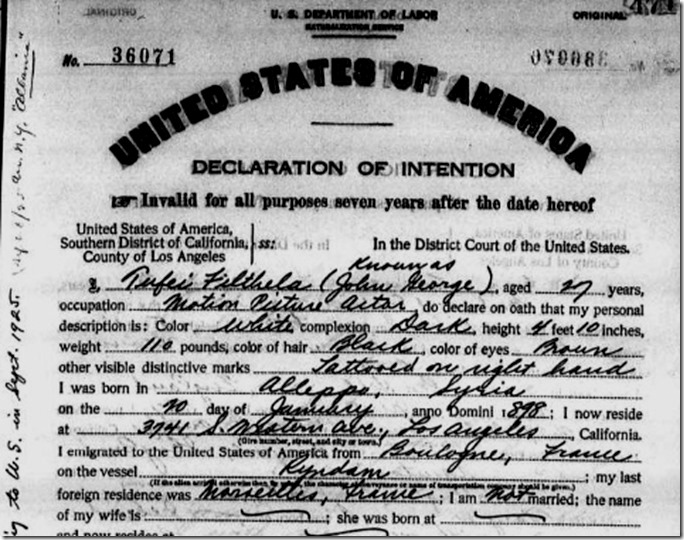 ORIGINAL
471
U. S. DEPARTMENT OF LABOR
NATURALIZATION SERVICE
ORIGINAL
No. 36071
380070
UNITED STATES OF AMERICA
DECLARATION OF INTENTION
Invalid for all purposes seven years after the date hereof
United States of America,
Southern District of California,
County of Los Angeles
ss:
In the District Court of the United States.
Known as
I, Tufei Filthela (John George), aged 27 years,
occupation Motion Picture Actor, do declare on oath that my personal
description is: Color White complexion Dark, height 4 feet 10 inches,
weight 110 pounds, color of hair Black, color of eyes Broun
other visible distinctive marks Tattored on right hand
I was born in Alleppo, Syria
on the 20 day of January, anno Domini 1898; I now reside
at 3741 S. Western Ave., Los Angeles, California.
(Give number, street, and city or town.)
I emigrated to the United States of America from Boulogne, France
on the vessel Ryndam; my last
(If the alien arrived otherwise than by vessel, the character of conveyance or name of transportation company should be given.)
foreign residence was Marseilles, France; I am not married; the name
of my wife is; she was born at
and now resides at
to U.S. in Sept. 1925.
N.Y. "Albania"